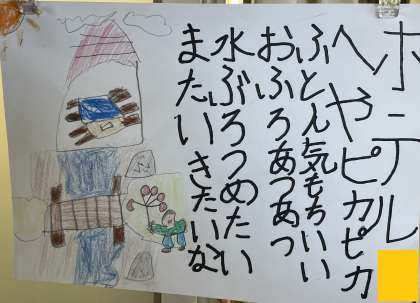 ホテル
へやピカピカ
ふとん気もちいい
おふろあつあつ
水ぶろつめたい
またいきたいな